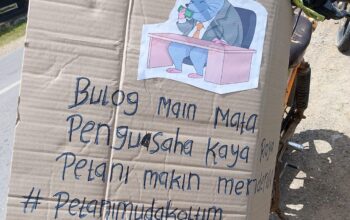 Bulog main mata
Pengusaha kaya Raya
Petani makin menderita
# Petanimudakaltim